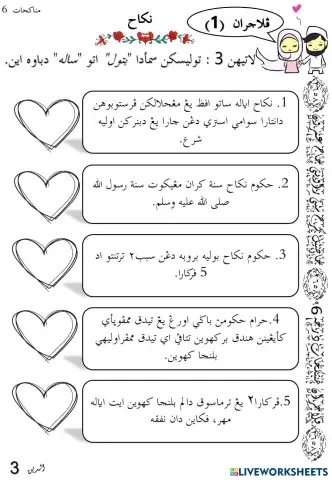 مناكحات 6
ڤلاجران (1)
نكاح
لاتيهن 3 : توليسكن سمادا "بتول" اتو "ساله" دباوه اين.
1. نكاح اياله ساتو افظ يڠ مڠحلالكن ڤرستوبوهن
دانتارا سوامي استري دڠن چارا يڠ دبنركن اوليه
شرع.
2. حكوم نكاح سنة كران مڠيكوت سنة رسول الله
صلى الله عليه وسلم.
3. حكوم نكاح بوليه بروبه دڠن سبب٢ ترتنتو اد
5 ڤركارا.
4.حرام حكومن باكي اورڠ يڠ تيدق ممڤوڽأي
كأيڠينن هندق بركهوين تتاڤي اي تيدق ممڤراوليهي
بلنجا كهوين.
5.ڤركارا٢ يڠ ترماسوق دالم بلنجا كهوين ايت اياله
مهر، ڤكاين دان نفقه
الدين 3
LIVEWORKSHEETS